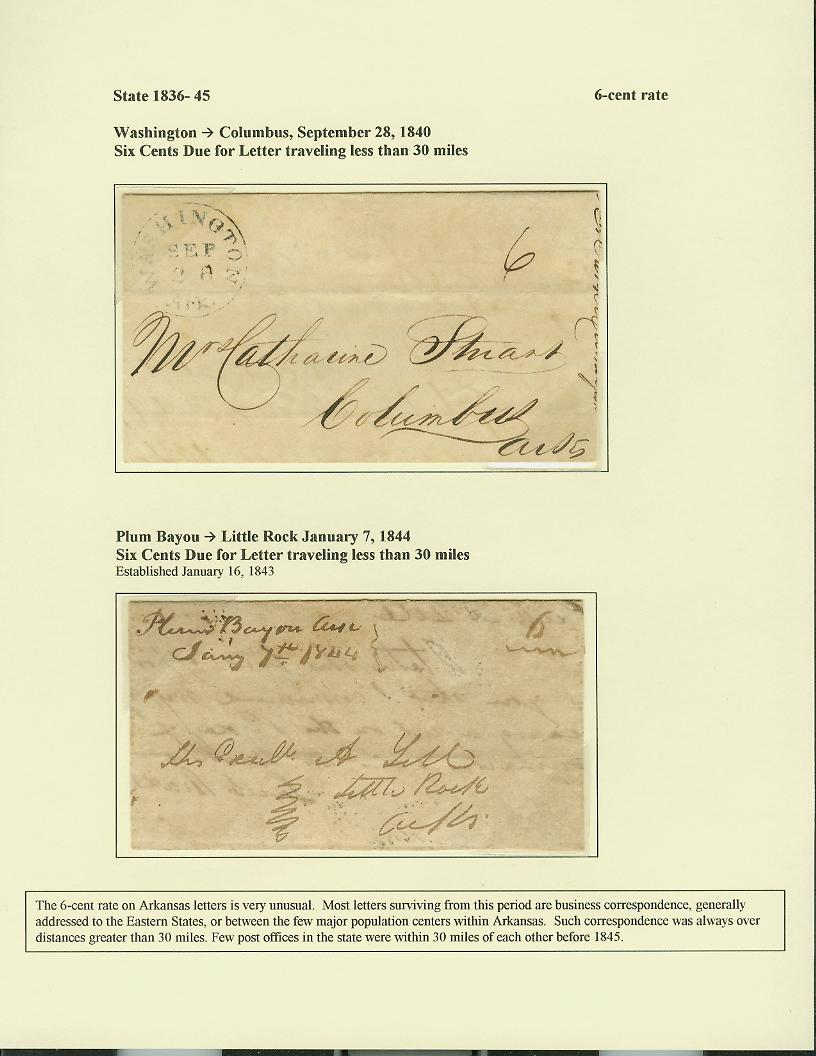 State 1836- 45 6-cent rate
Washington → Columbus, September 28, 1840
Six Cents Due for Letter traveling less than 30 miles
WASHINGTON
SEP
28
ARK.
6
Mrs Catharine Stuart
Columbus
Arks
Plum Bayou → Little Rock January 7, 1844
Six Cents Due for Letter traveling less than 30 miles
Established January 16, 1843
Plum Bayou Ark
Jany 7th 1844
6
A Yell
Little Rock
Arks
The 6-cent rate on Arkansas letters is very unusual. Most letters surviving from this period are business correspondence, generally
addressed to the Eastern States, or between the few major population centers within Arkansas. Such correspondence was always over
distances greater than 30 miles. Few post offices in the state were within 30 miles of each other before 1845.